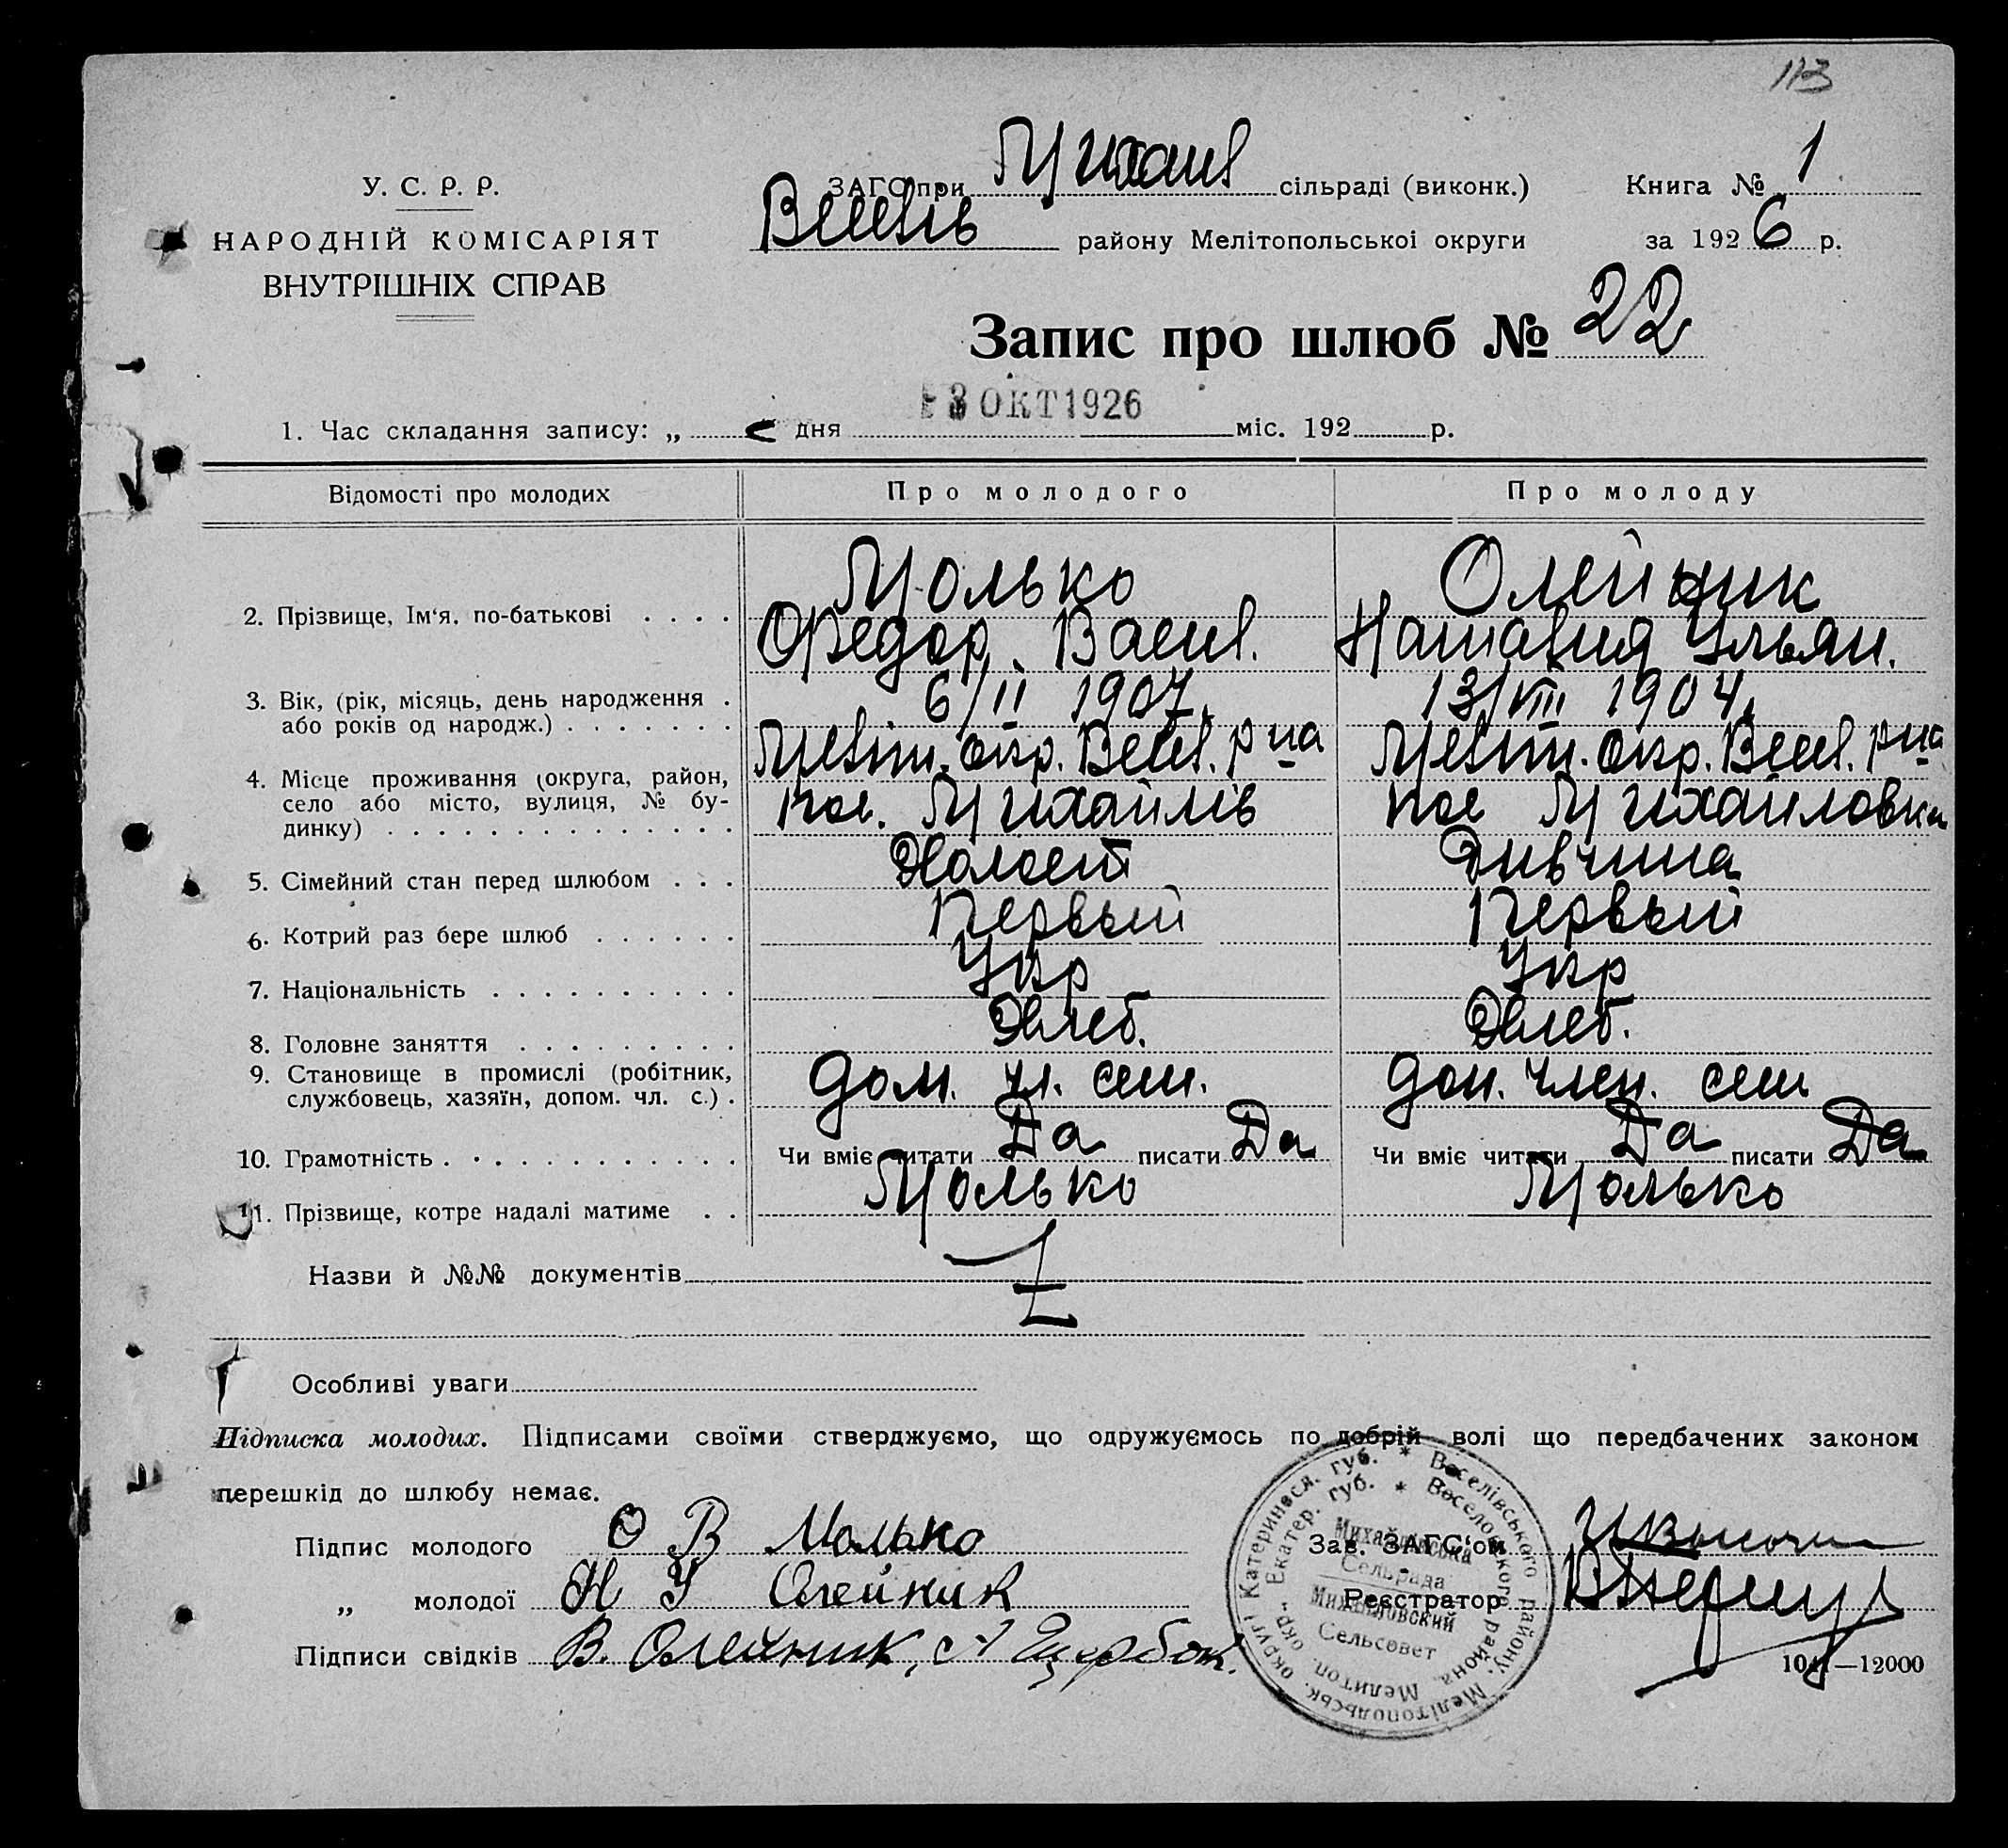 113
У. С. Р. Р.
НАРОДНІЙ КОМІСАРІЯТ
ВНУТРІШНІХ СПРАВ
ЗАГС при Михаил сільраді (виконк.) Книга № 1
Веселів району Мелітопольськоі округи за 1926 р.
Запис про шлюб № 22
3 ОКТ 1926
1. Час складання запису: „ дня міс. 192 р.
Відомості про молодих Про молодого Про молоду
2. Прізвище, Ім'я, по-батькові Молько Олейник
Федор Васил. Наталия Ульян.
3. Вік, (рік, місяць, день народження 6/II 1907. 13/VIII 1904.
або років од народж.)
Меліт. окр. Весел. р на Меліт. окр. Весел. р на
4. Місце проживання (округа, район,
село або місто, вулиця, № бу- пос. Михайлів пос Михайловка
динку)
5. Сімейний стан перед шлюбом Холост Дивчина
6. Котрий раз бере шлюб Первый Первый
7. Національність Укр Укр
8. Головне заняття Хлеб. Хлеб.
9. Становище в промислі (робітник, дом. чл. сем. дом. член. сем
службовець, хазяїн, допом. чл. с.)
10. Грамотність Чи вміє читати Да писати Да Чи вміє читати Да писати Да
11. Прізвище, котре надалі матиме Молько Молько
Назви й №№ документів
Особливі уваги
Підписка молодих. Підписами своїми стверджуємо, що одружуємось по добрій волі що передбачених законом
перешкід до шлюбу немає.
Підпис молодого Ф В Молько Зав. ЗАГС'ом
„ молодої Н У Олейник Реєстратор
Підписи свідків В. Олейник, А Щербак.
104—12000
Катеринося. губ. * Веселівського району. Мелітопольськ. округі
Екатер. губ. * Веселовского района, Мелитоп. окр.
Михайлівська
Сельрада
Михайловский
Сельсовет